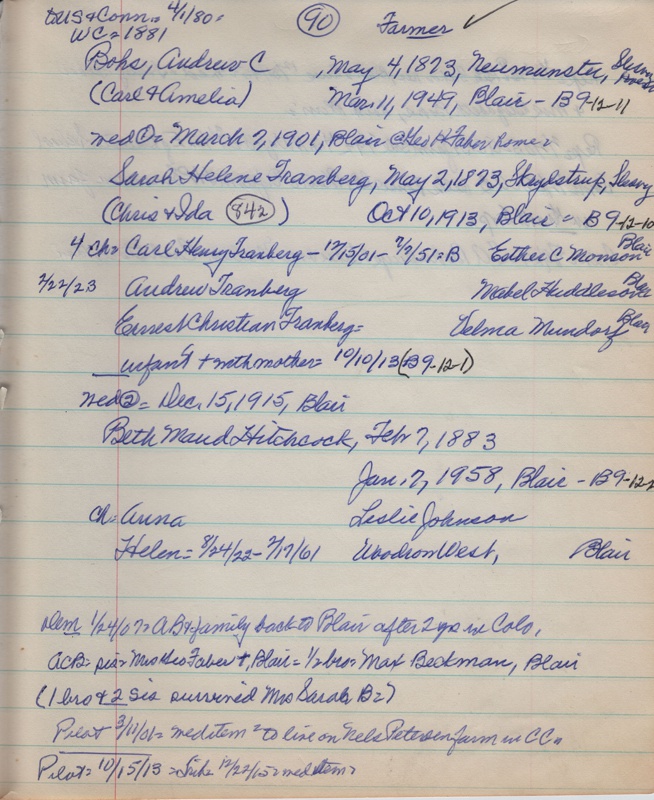 to US & Conn. 4/1/80=
WC=1881
90 Farmer ✓
Bohs, Andrew C , May 4, 1873, Neumunster,
(Carl & Amelia) Mar. 11, 1949, Blair - B9-12-11
med①= March 7, 1901, Blair @ Geo H Faber Home=
Sarah Helene Tranberg, May 2, 1873, Skaylstrup, Slesvig
(Chris & Ida 842) Oct 10, 1913, Blair = B9-12-10
4 ch= Carl Henry Tranberg - 12/15/01 - 7/2/51=B Esther C Monson Blair
7/22/23 Andrew Tranberg Mabel Huddleson Blair
Ernest Christian Tranberg= Velma Mundorf Blair
infant + with mother= 10/10/13 (B9-12-1)
med②= Dec. 15, 1915, Blair
Beth Maud Hitchcock, Feb 7, 1883
Jan. 7, 1958, Blair - B9-12-
ch= Anna Leslie Johnson
Helen= 8/24/22 - 2/17/61 Woodrow West, Blair
Dem 1/24/07= AB & family back to Blair after 2 yrs in Colo.
ACB= sis= Mrs Geo Faber +, Blair= 1/2 bro= Max Beckman, Blair
(1 bro & 2 sis survived Mrs Sarah B=)
Pilot 3/11/01= med item= to live on Nels Petersen farm in CC=
Pilot= 10/15/13 = 12/22/15= med item=